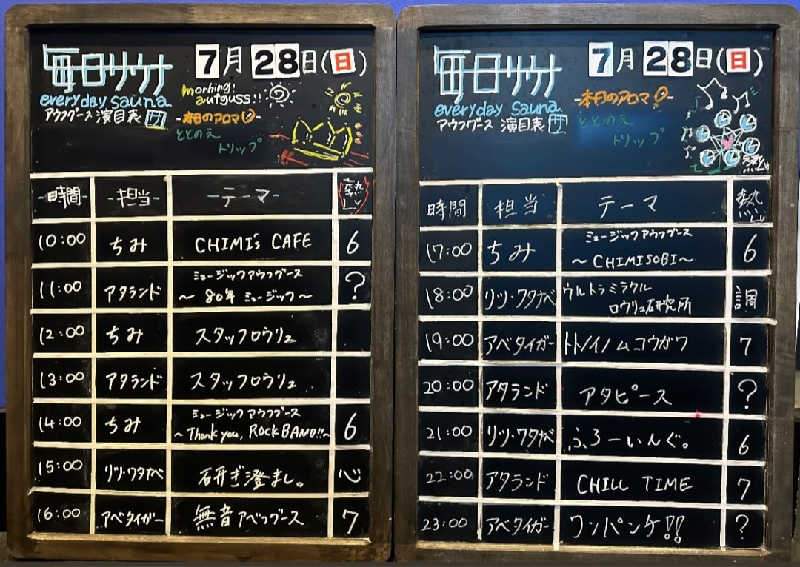 毎日サウナ
7月28日(日)
everyday sauna
morning
aufguss!!
アウフグース 演目表 サ
-本日のアロマ-
ととのえ
トリップ
時間 担当 テーマ 熱い
10:00 ちみ CHIMI's CAFE 6
11:00 アタランド ミュージックアウフグース
～80年 ミュージック～ ?
12:00 ちみ スタッフロウリュ
13:00 アタランド スタッフロウリュ
14:00 ちみ ミュージックアウフグース
～Thank you, ROCK BAND!!～ 6
15:00 リツ・ワタナベ 研ぎ澄まし。 心
16:00 アベタイガー 無音アベッグース 7
毎日サウナ
7月28日(日)
everyday sauna
アウフグース 演目表 サ
-本日のアロマ-
ととのえ
トリップ
時間 担当 テーマ 熱い
17:00 ちみ ミュージックアウフグース
～CHIMISOBI～ 6
18:00 リツ・ワタナベ ウルトラミラクル
ロウリュ研究所 調
19:00 アベタイガー トトノイノムコウガワ 7
20:00 アタランド アタピース ?
21:00 リツ・ワタナベ ふろーいんぐ。 6
22:00 アタランド CHILL TIME 7
23:00 アベタイガー ワンパンケ!! ?